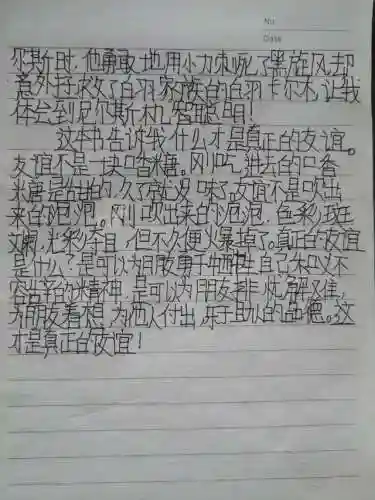 No
Date
尔斯时,他勇敢地用小刀刺死了黑旋风,却
意外拯救了白羽家族的白羽卡尔木,让我
体会到尼尔斯机智聪明!
这本书告诉我什么才是真正的友谊。
友谊不是一块口香糖。刚吃进去的口香
糖是甜的,久了就没味了。友谊不是吹出
来的泡泡。刚吹出来的泡泡,色彩斑
斓,光彩夺目,但不久便火暴掉了。真正的友谊
是什么?是可以为朋友勇于牺牲自己
精神,是可以为朋友排忧解难,
为朋友着想,为他人付出,乐于助人的品德。这
才是真正的友谊!